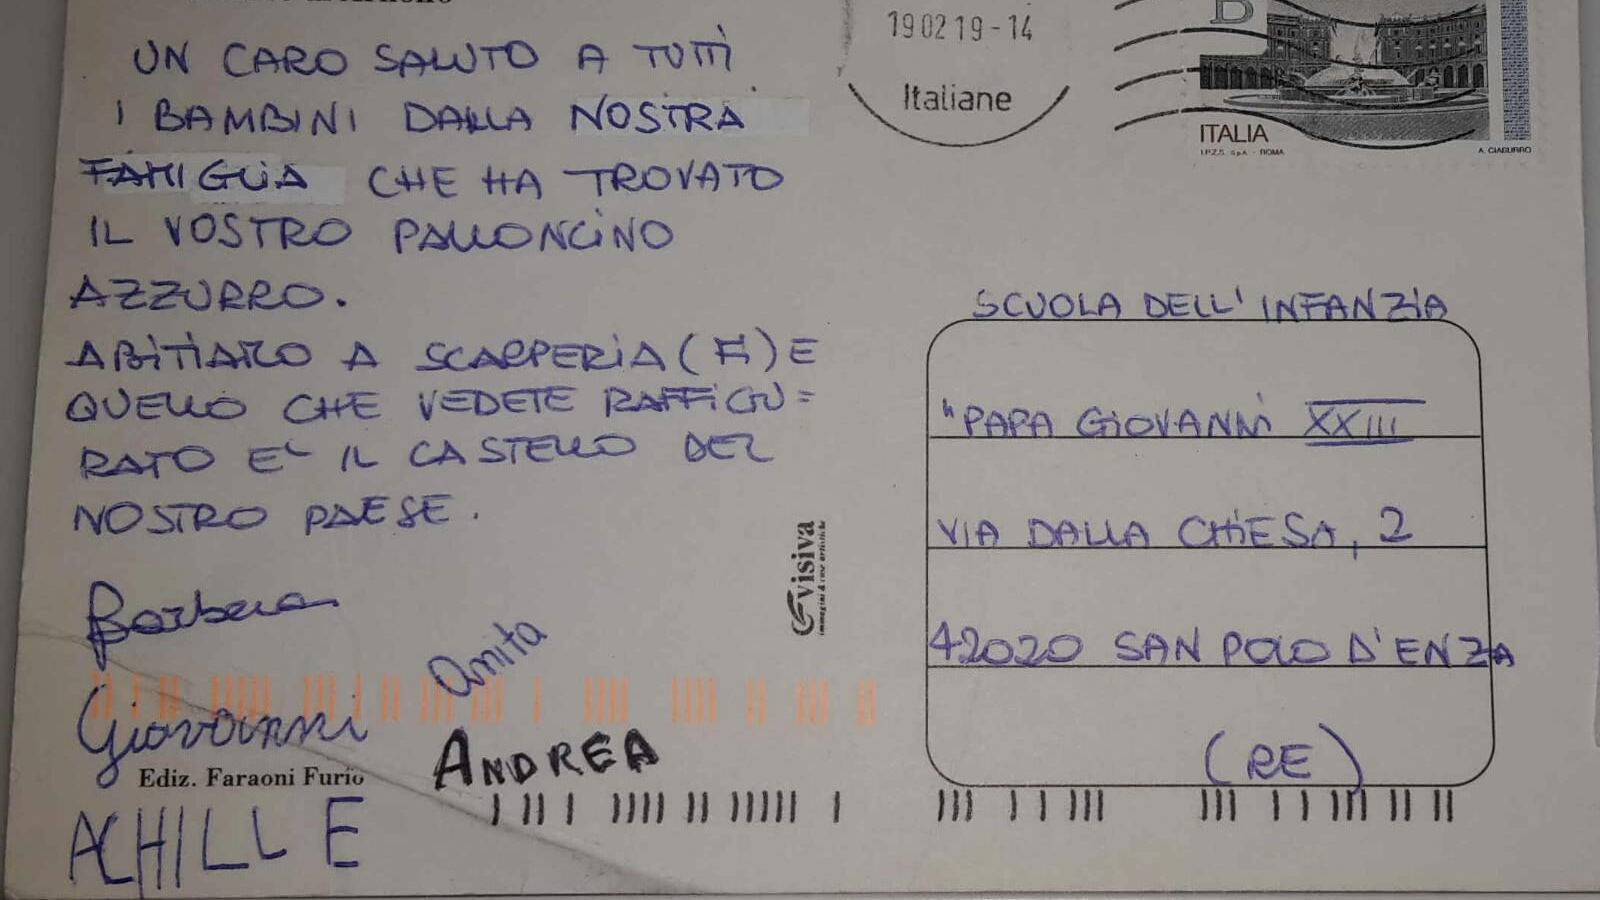 UN CARO SALUTO A TUTTI
I BAMBINI DALLA NOSTRA
FAMIGLIA CHE HA TROVATO
IL VOSTRO PALLONCINO
AZZURRO.
ABITIAMO A SCARPERIA (FI) E
QUELLO CHE VEDETE RAFFIGU=
RATO E' IL CASTELLO DEL
NOSTRO PAESE.
Barbara
Anita
Giovanni
ANDREA
Ediz. Faraoni Furio
ACHILLE
visiva
19 02 19 - 14
Italiane
B
ITALIA
I.P.Z.S. S.p.A. - ROMA
A. CIABURRO
SCUOLA DELL'INFANZIA
"PAPA GIOVANNI XXIII
VIA DALLA CHIESA, 2
42020 SAN POLO D'ENZA
(RE)